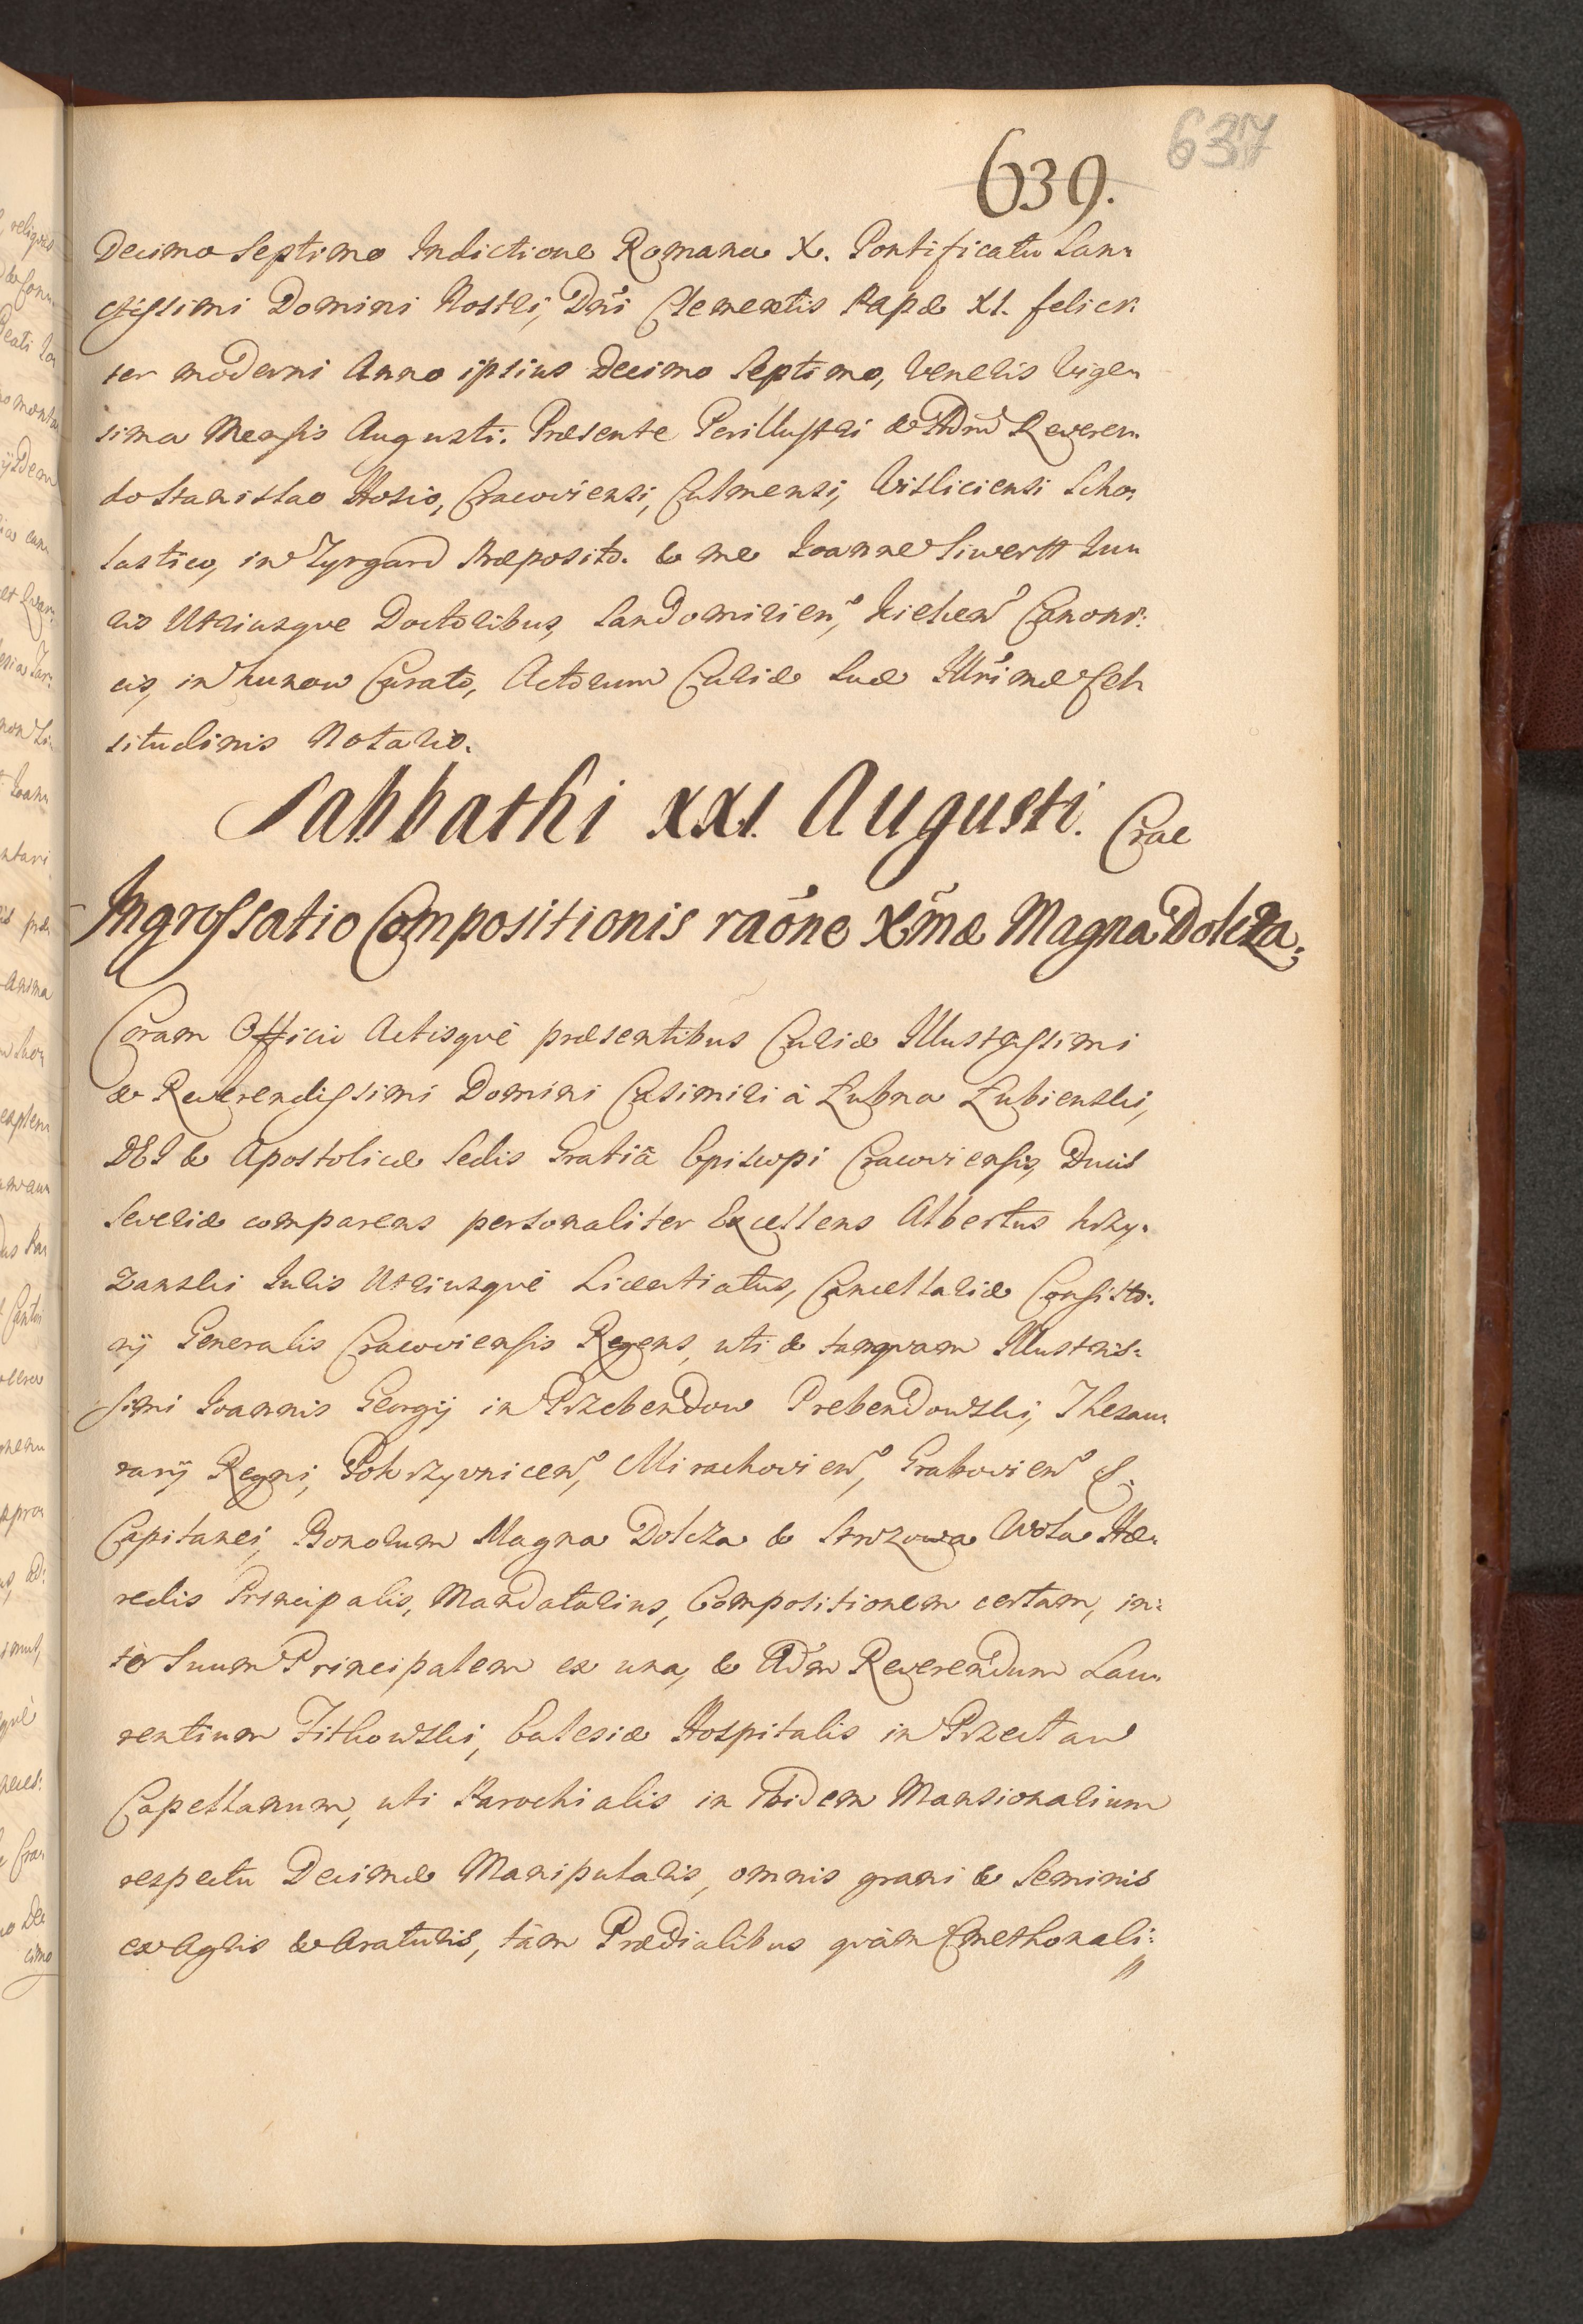 637
639.
Decimo Septimo Indictione Romana X. Pontificatu San„
ctissimi Domini Nostri, Dñi Clementis Papæ XI. felici„
ter moderni Anno ipsius Decimo Septimo, Veneris Vige„
sima Mensis Augusti. Præsente Perillustri & Adm̃ Reveren„
do Stanislao Hosio, Cracoviensi, Culmensi, Visliciensi Scho„
lastico, in Zyrgard Præposito. & me Ioanne Siwertt Iu„
ris Utriusqve Doctoribus, Sandomirien̄, Kielcen̄ Canoni„
cis, in Kunow Curato, Actorum Curiæ Suæ Illr̃imæ Cel„
situdinis Notario.
Sabbathi XXI. Augusti. Crac
Ingrossatio Compositionis raõne Xm̃æ Magna Dolcza.
Coram Officio Actisqvè præsentibus Curiæ Illustrissimi
& Reverendissimi Domini Casimiri à Łubna Łubienski,
DEI & Apostolicæ Sedis Gratiâ Episcopi Cracoviensis, Ducis
Severiæ comparens personaliter Excellens Albertus Krzy„
zanski Iuris Utriusqvè Licentiatus, Cancellariæ Consisto„
rij Generalis Cracoviensis Regens, uti & tamqvam Illustris„
simi Ioannis Georgij in Przebendow Prebendowski, Thesau„
rarij Regni, Pokrzyvnicen̄, Mirachovien̄, Grabovien̄ &.
Capitanei, Bonorum Magna Dolcza & Strozowa Wola Hæ„
redis Principalis, Mandatarius, Compositionem certam, in„
tèr Suum Principalem ex una, & Adm̃ Reverendum Lau„
rentium Fitkowski, Ecclesiæ Hospitalis in Przeclaw
Capellanum, uti Parochialis in Ibidem Mansionarium
respectu Decimæ Manipularis, omnis grani & Seminis
ex Agris & Araturis, tàm Prædialibus qvàm Cmethonali„